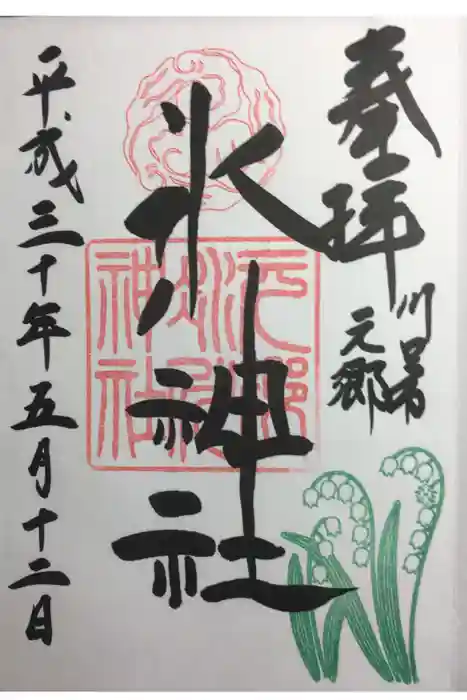 奉拝
川口市
元郷
氷川神社
元郷
氷川
神社
平成三十年五月十二日